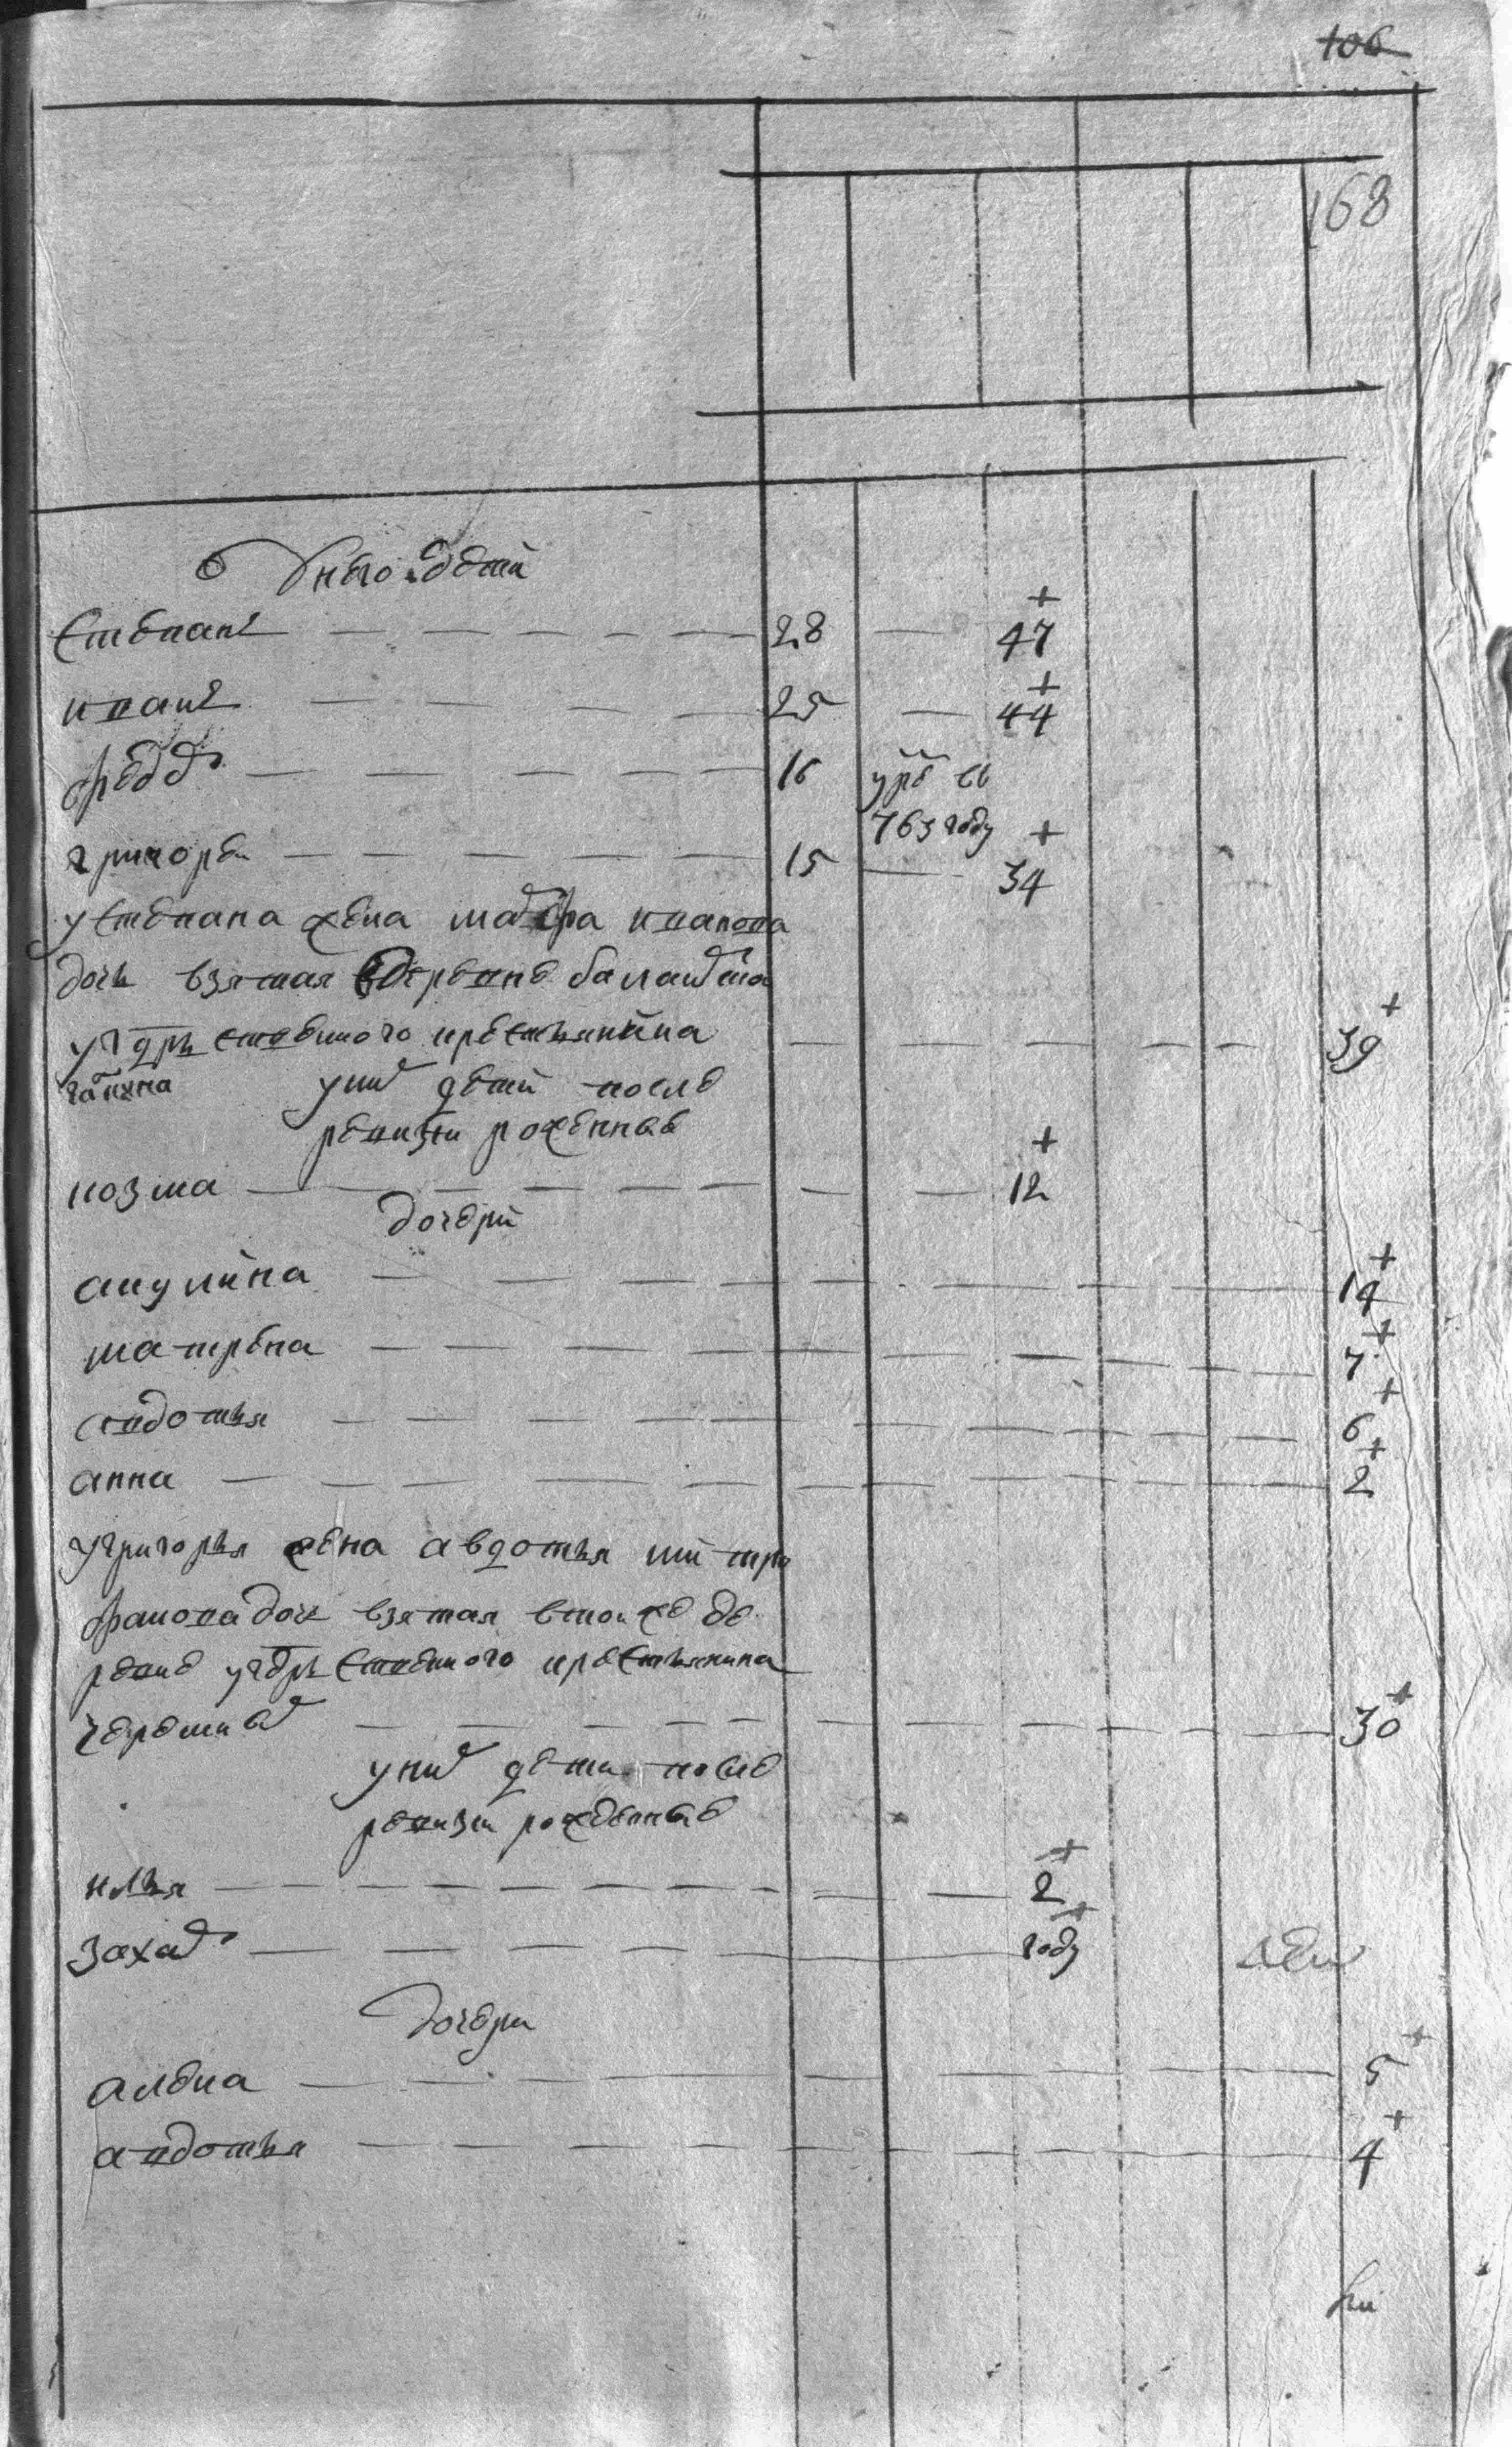 106
168
У него дети
Степанъ 28 47
иванъ 25 44
федоръ 16 умре въ
763 году
григореи 15 34
у степана жена марфа иванова
дочь взятая в деревне
у государственного крестьянина 39
у них детей после
ревизии рожденные
козма 12
дочери
акулина 14
матрена 7
авдотья 6
анна 2
у григорья жена авдотья митро
фанова дочь взятая в тои же де
ревне у государственного крестьянина
30
у них дети после
ревизии рожденные
илья 2
захаръ году
дочери
алена 5
авдотья 4